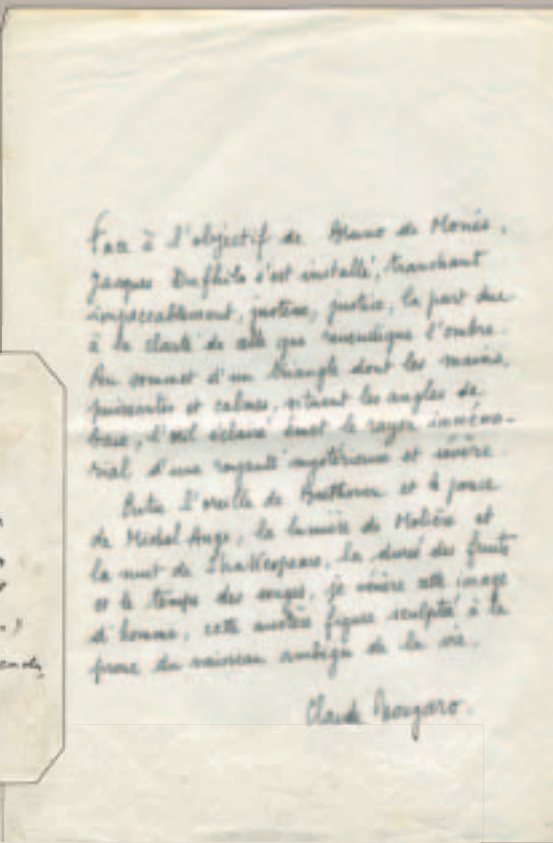 Face à l'objectif de Bruno de Monès,
Jacques Dufilho s'est installé, tranchant
impeccablement, justice, la part due
à la clarté de celle que revendique l'ombre.
Au sommet d'un triangle dont les mains,
puissantes et calmes, situent les angles de
base, l'œil éclairé émet le rayon immémo-
rial d'une royauté mystérieuse et sévère.
Entre l'oreille de Beethoven et le pouce
de Michel Ange, la lumière de Molière et
la nuit de Shakespeare, la durée des fruits
et le temps des songes, je vénère cette image
d'homme, cette austère figure sculptée à la
proue du vaisseau ambigu de la vie.
Claude Nougaro.